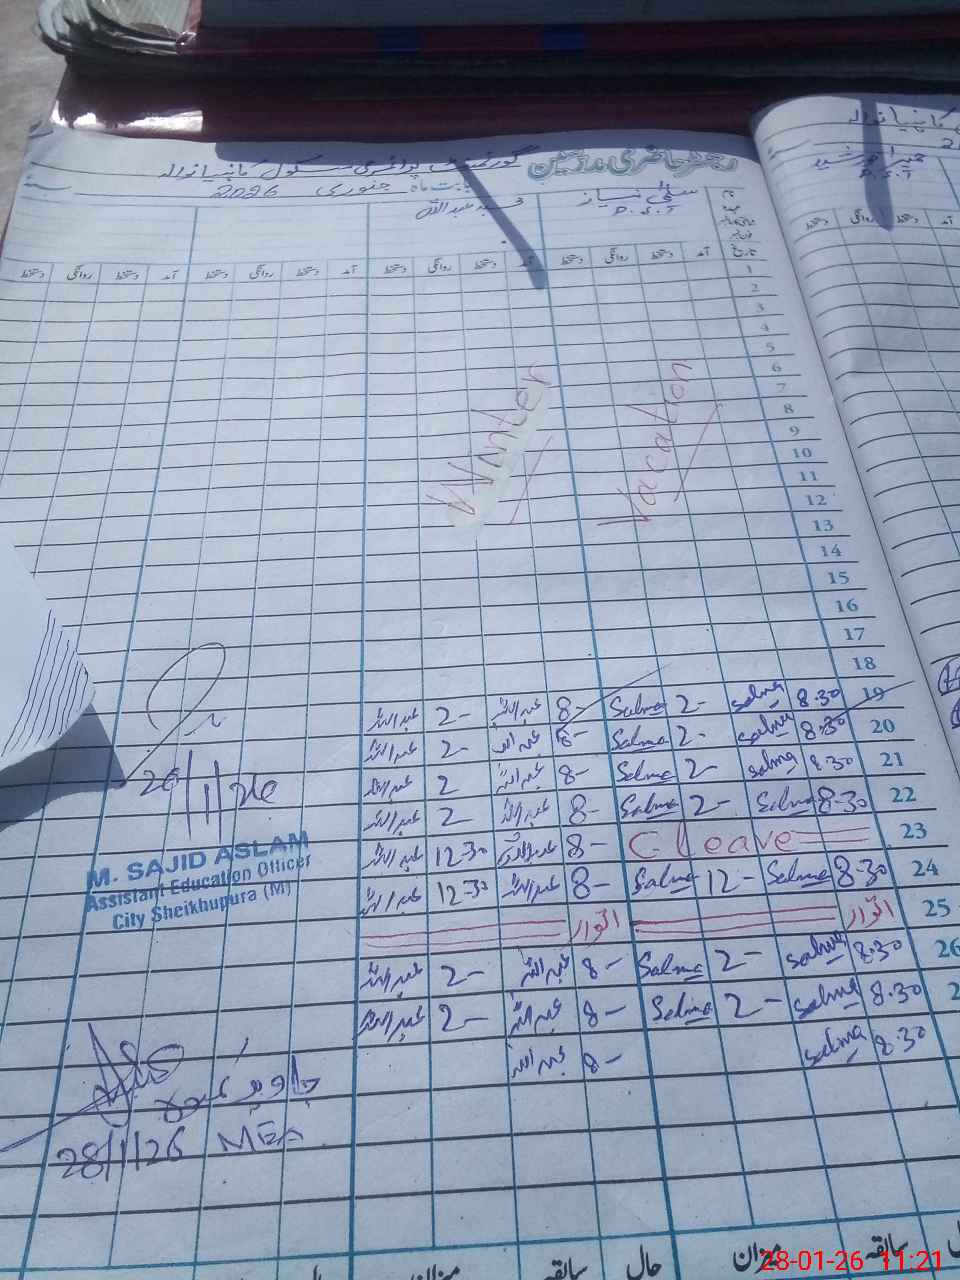 رجسٹر حاضری مدرسین گورنمنٹ پرائمری سکول
بابت ماہ جنوری 2026 سنہ
نام سلمیٰ نیاز محمد عبداللہ
P.S.T
تاریخ آمد دستخط روانگی دستخط آمد دستخط روانگی دستخط آمد دستخط روانگی دستخط آمد دستخط روانگی دستخط
1
2
3
4
5
6
7
8
9
10
11
12
13
14
15
16
17
18
Winter Vacation
19 8.30 Salma 2- Salma 8- عبداللہ 2- عبداللہ
20 8.30 Salma 2- Salma 8- عبداللہ 2- عبداللہ
21 8.30 Salma 2- Salma 8- عبداللہ 2 عبداللہ
22 8.30 Salma 2- Salma 8- عبداللہ 2 عبداللہ
23 C leave 8- عبداللہ 12.30 عبداللہ
24 8.30 Salma 12- Salma 8- عبداللہ 12.30 عبداللہ
25 اتوار اتوار
26 8.30 Salma 2- Salma 8- عبداللہ 2- عبداللہ
2 8.30 Salma 2- Salma 8- عبداللہ 2- عبداللہ
8.30 Salma 8- عبداللہ
26/1/26
M. SAJID ASLAM
Assistant Education Officer
City Sheikhupura (M)
28/1/26 MEA
میزان سابقہ حال میزان سابقہ
P.S.T
28-01-26 11:21